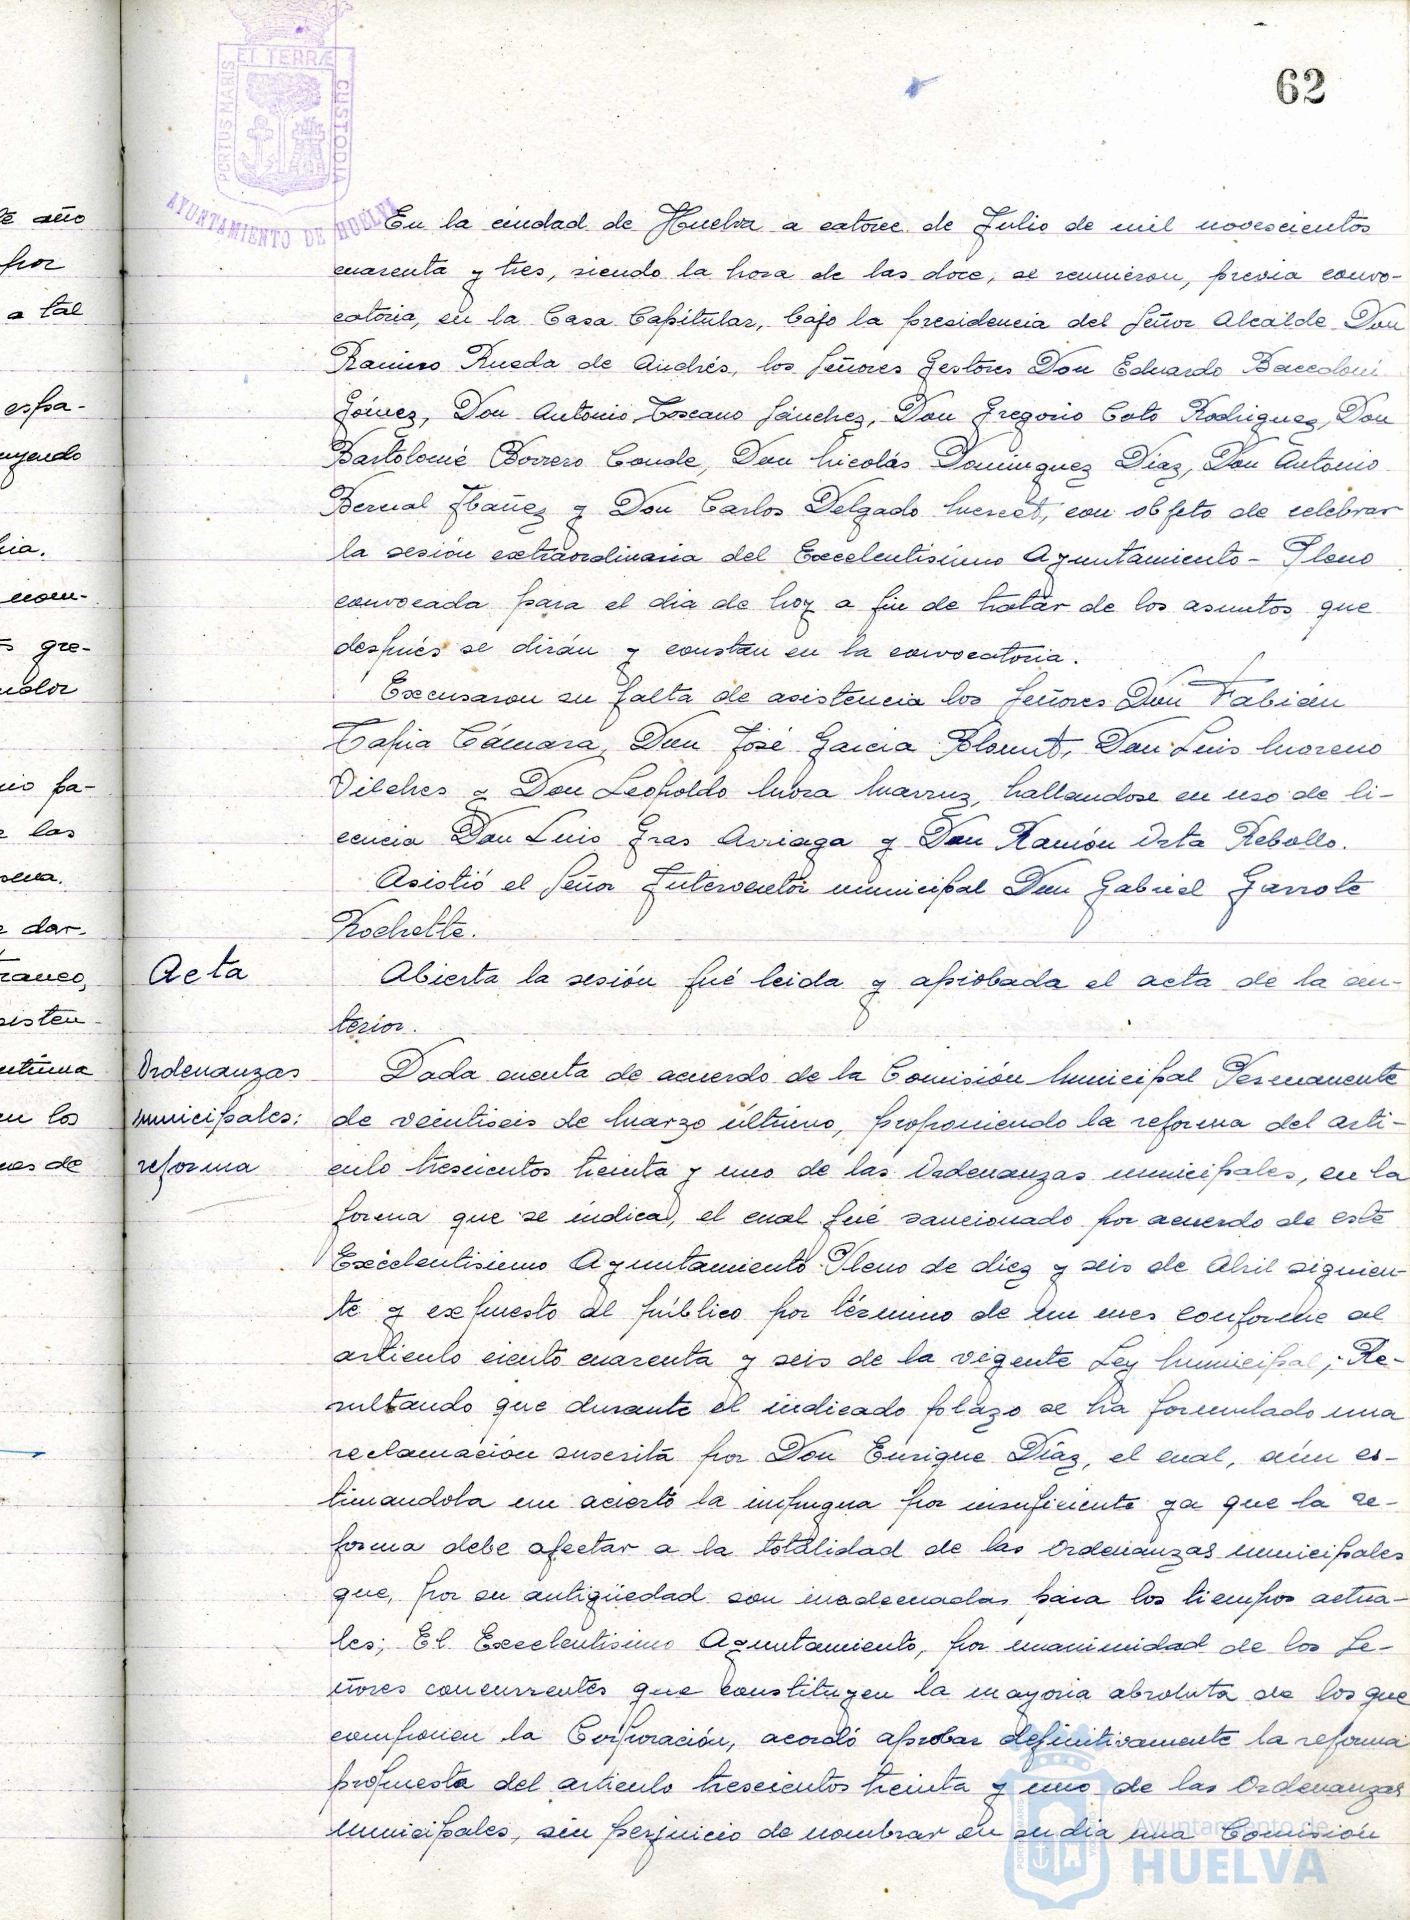 62
PORTUS MARIS ET TERRÆ CUSTODIA
AYUNTAMIENTO DE HUELVA
En la ciudad de Huelva a catorce de Julio de mil novescientos
cuarenta y tres, siendo la hora de las doce, se reunieron, previa convo-
catoria, en la Casa Capitular, bajo la presidencia del Señor Alcalde Don
Ramiro Rueda de Andrés, los Señores Gestores Don Eduardo Baccedoni
Gómez, Don Antonio Toscano Sánchez, Don Gregorio Coto Rodriguez, Don
Bartolomé Borrero Conde, Don Nicolás Dominguez Díaz, Don Antonio
Bernal Ibañez y Don Carlos Delgado, con objeto de celebrar
la sesión extraordinaria del Excelentísimo Ayuntamiento - Pleno
convocada para el dia de hoy a fin de tratar de los asuntos que
después se dirán y constan en la convocatoria.
Excusaron su falta de asistencia los Señores Don Fabián
Tapia Cámara, Don José Garcia Blomut, Don Luis Moreno
Vilches y Don Leopoldo Mora Marruz, hallandose en uso de li-
cencia Don Luis Gras Arriaga y Don Ramón Orta Rebollo.
Asistió el Señor Interventor municipal Don Gabriel Garrote
Rochette.
Acta
Abierta la sesión fué leida y aprobada el acta de la an-
terior.
Ordenanzas
municipales:
reforma
Dada cuenta de acuerdo de la Comisión Municipal Permanente
de veintiseis de Marzo último, proponiendo la reforma del arti-
culo trescientos treinta y uno de las Ordenanzas municipales, en la
forma que se indica, el cual fué sancionado por acuerdo de este
Excelentisimo Ayuntamiento Pleno de diez y seis de Abril siguien-
te y expuesto al público por término de un mes conforme al
articulo ciento cuarenta y seis de la vigente Ley Municipal; Re-
sultando que durante el indicado plazo se ha formulado una
reclamación suscrita por Don Enrique Díaz, el cual, aún es-
timandola un acierto la impugna por insuficiente ya que la re-
forma debe afectar a la totalidad de las Ordenanzas municipales
que, por su antigüedad son inadecuadas para los tiempos actua-
les; El Excelentisimo Ayuntamiento, por unanimidad de los Se-
ñores concurrentes que constituyen la mayoria absoluta de los que
componen la Corporación, acordó aprobar definitivamente la reforma
propuesta del articulo trescientos treinta y uno de las Ordenanzas
municipales, sin perjuicio de nombrar en su dia una Comisión
Ayuntamiento de
HUELVA
de año
por
a tal
espa-
uyendo
nom-
gre-
pa-
las
dar-
ranco,
sisten-
en los